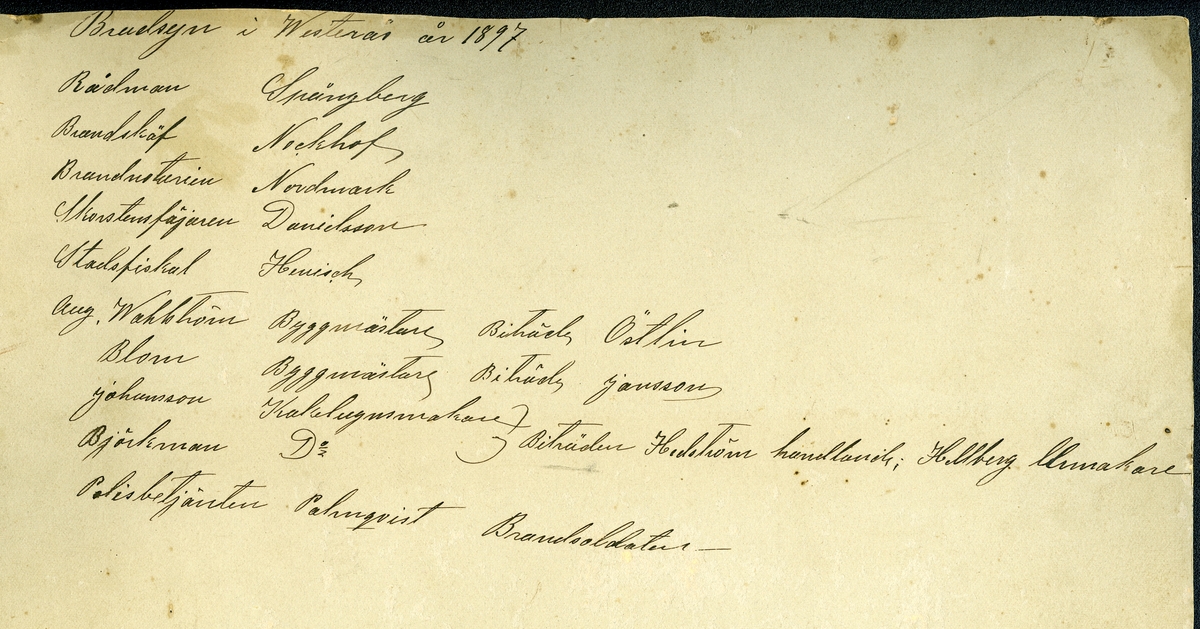 Bradsyn i Westerås år 1897
Rådman Spångberg
Brandskäf Nockhof
Brandnotarien Nordmark
Skorstensfäjaren Danielsson
Stadsfiskal Henisch
Aug. Wahlström Byggmästare Biträde Östlin
Blom Byggmästare Biträde Jansson
Johansson Kakelugnsmakare
Björkman D:o Biträden Hedström handlande; Hellberg Urmakare
Polisbetjänten Palmqvist Brandsoldaten —